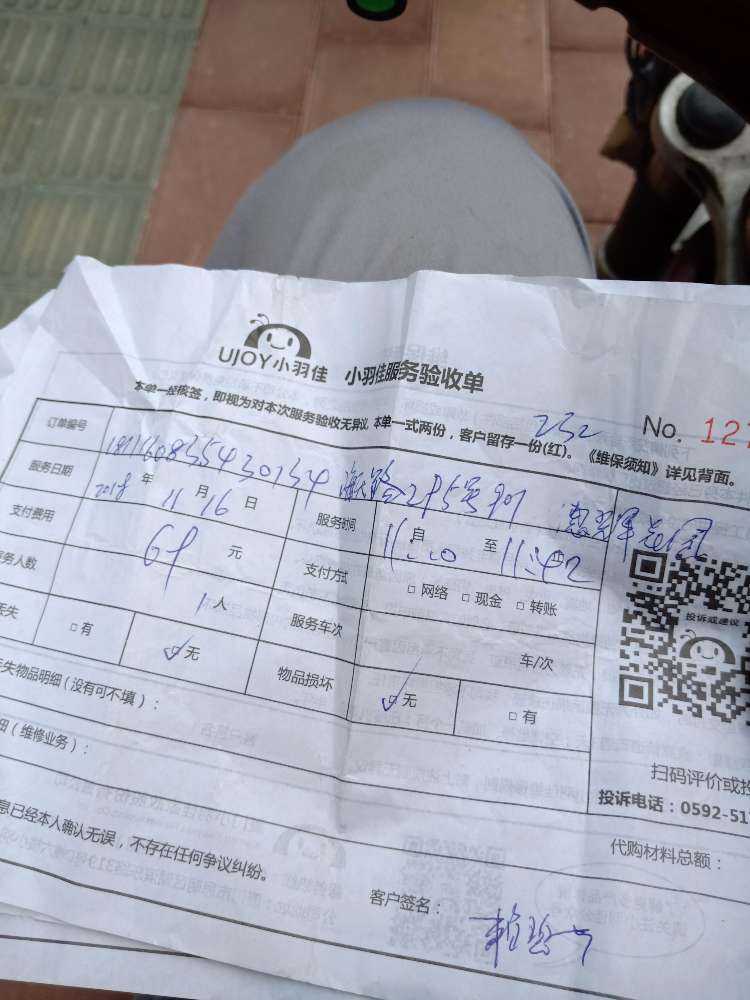 UJOY小羽佳 小羽佳服务验收单
本单一经核签，即视为对本次服务验收无异议，本单一式两份，客户留存一份(红)。《维保须知》详见背面。
No. 127
232
订单编号
服务日期 2018年 11月 16日 服务时间 自 11:00 至 11:42
支付费用 69 元 支付方式 □ 网络 □ 现金 □ 转账
务人数 1人 服务车次 车/次
丢失 □ 有 ☑ 无 物品损坏 ☑ 无 □ 有
失物品明细（没有可不填）：
细（维修业务）：
投诉或建议
扫码评价或投
投诉电话：0592-51
代购材料总额：
息已经本人确认无误，不存在任何争议纠纷。
客户签名：